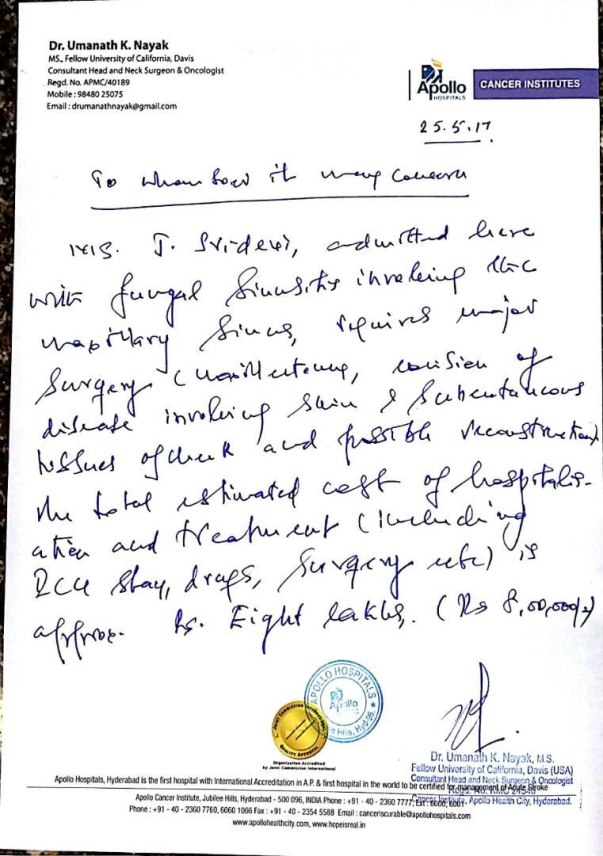 Dr. Umanath K. Nayak
MS., Fellow University of California, Davis
Consultant Head and Neck Surgeon & Oncologist
Regd. No. APMC/40189
Mobile : 98480 25075
Email : drumanathnayak@gmail.com
Apollo
HOSPITALS
CANCER INSTITUTES
25.5.17
To whomsoever it may concern
Mrs. J. Sridevi, admitted here
with fungal sinusitis involving the
maxillary sinus, requires major
surgery (maxillectomy, excision of
disease involving skin & subcutaneous
tissues of cheek and possible reconstruction).
The total estimated cost of hospitalis-
ation and treatment (including
ICU stay, drugs, surgery etc) is
approx. Rs. Eight lakhs. (Rs 8,00,000/-)
APOLLO HOSPITALS
Apollo
Hills, Hyd-96.
Organization Accredited
by Joint Commission International
Dr. Umanath K. Nayak, M.S.
Fellow University of California, Davis (USA)
Consultant Head and Neck Surgeon & Oncologist
Apollo Hospitals, Hyderabad is the first hospital with International Accreditation in A.P. & first hospital in the world to be certified for management of Acute Stroke
Cancer Institute, Apollo Health City, Hyderabad.
Apollo Cancer Institute, Jubilee Hills, Hyderabad - 500 096, INDIA Phone : +91 - 40 - 2360 7777, Ext : 6000, 6001
Phone : +91 - 40 - 2360 7760, 6060 1066 Fax : +91 - 40 - 2354 5588 Email : canceriscurable@apollohospitals.com
www.apollohealthcity.com, www.hopeisreal.in